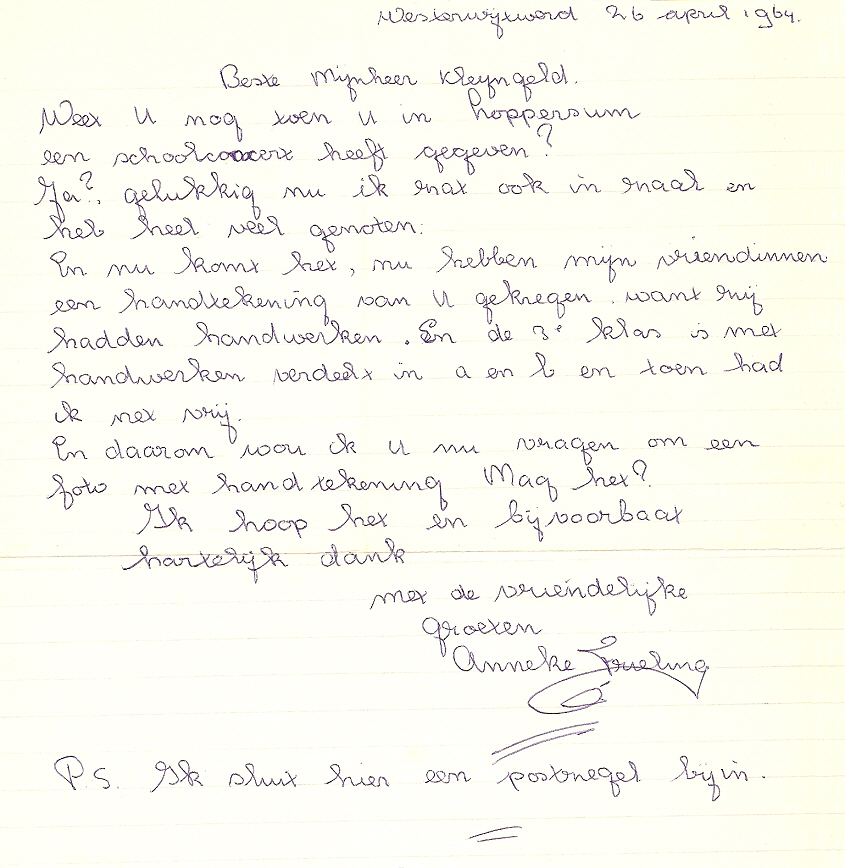 Westerwijtwerd 26 april 1964.
Beste Mijnheer Kleyngeld.
Weet U nog toen U in Loppersum
een schoolconcert heeft gegeven?
Ja?, gelukkig nu ik zat ook in zaal en
heb heel veel genoten.
En nu komt het, nu hebben mijn vriendinnen
een handtekening van U gekregen. want zij
hadden handwerken. En de 3e klas is met
handwerken verdeelt in a en b en toen had
ik net vrij.
En daarom wou ik U nu vragen om een
foto met handtekening Mag het?
Ik hoop het en bijvoorbaat
hartelijk dank
met de vriendelijke
groeten
Anneke
P.S. Ik sluit hier een postzegel bijin.